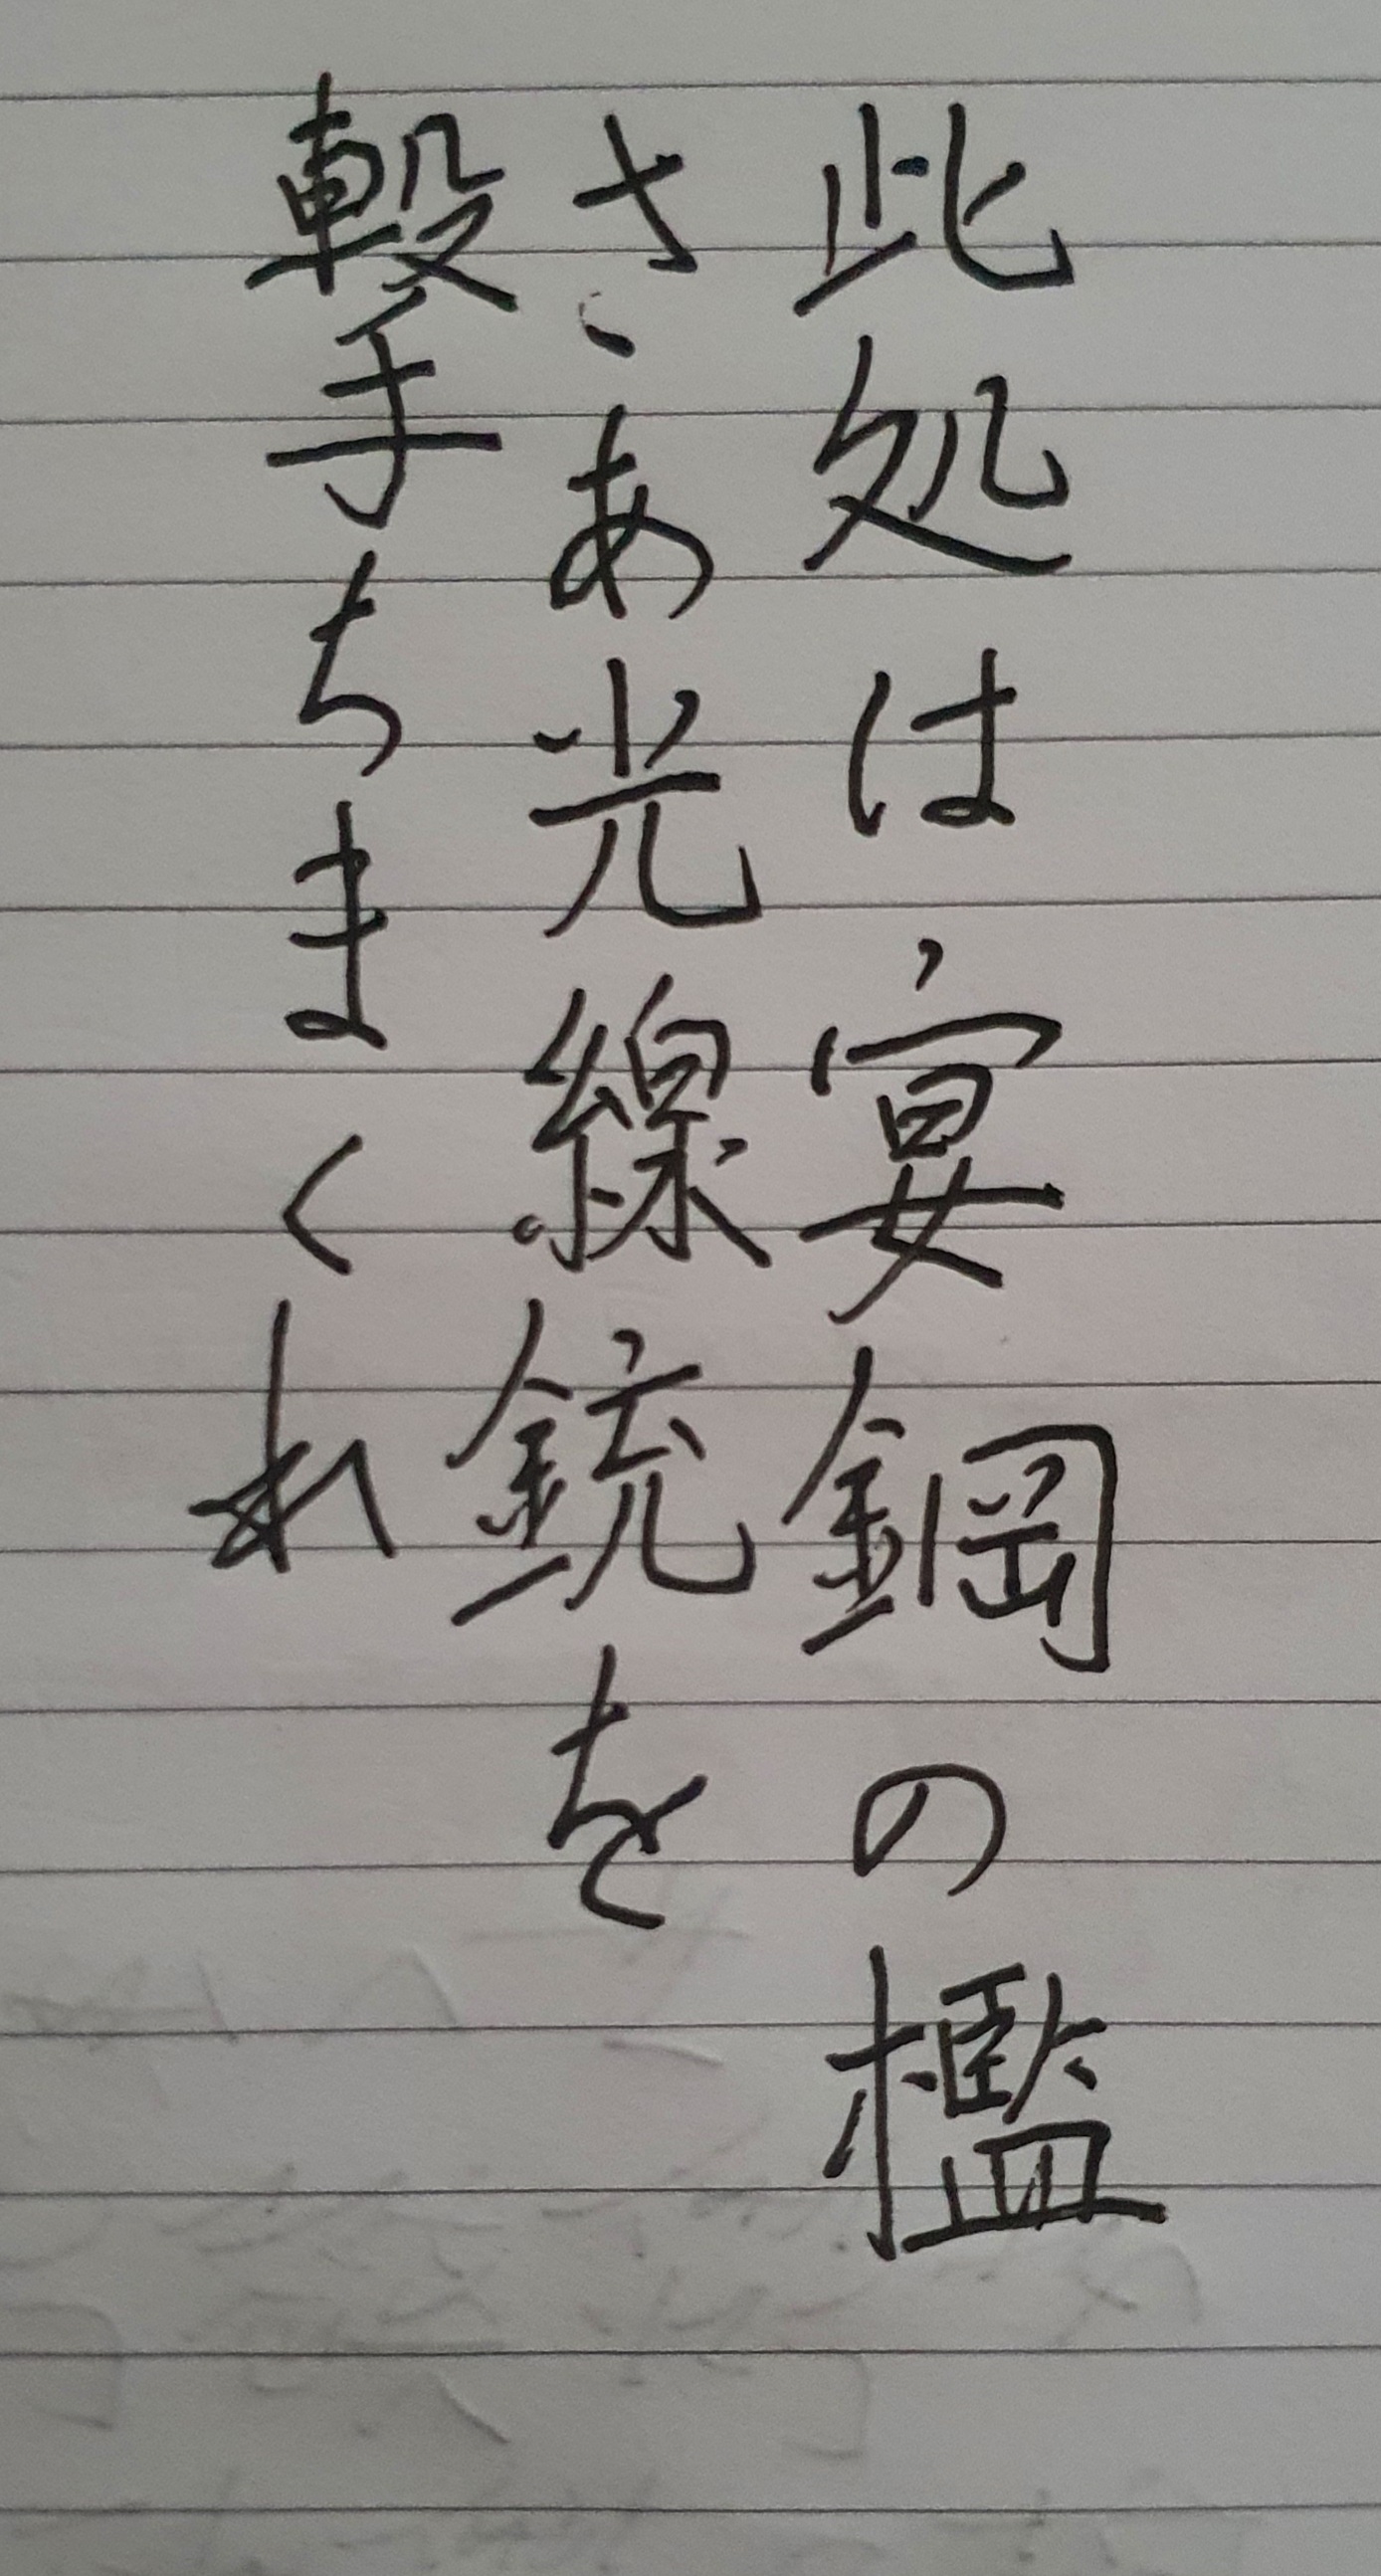 此処は宴鋼の檻
さゝあ光線銃を
撃ちまくれ